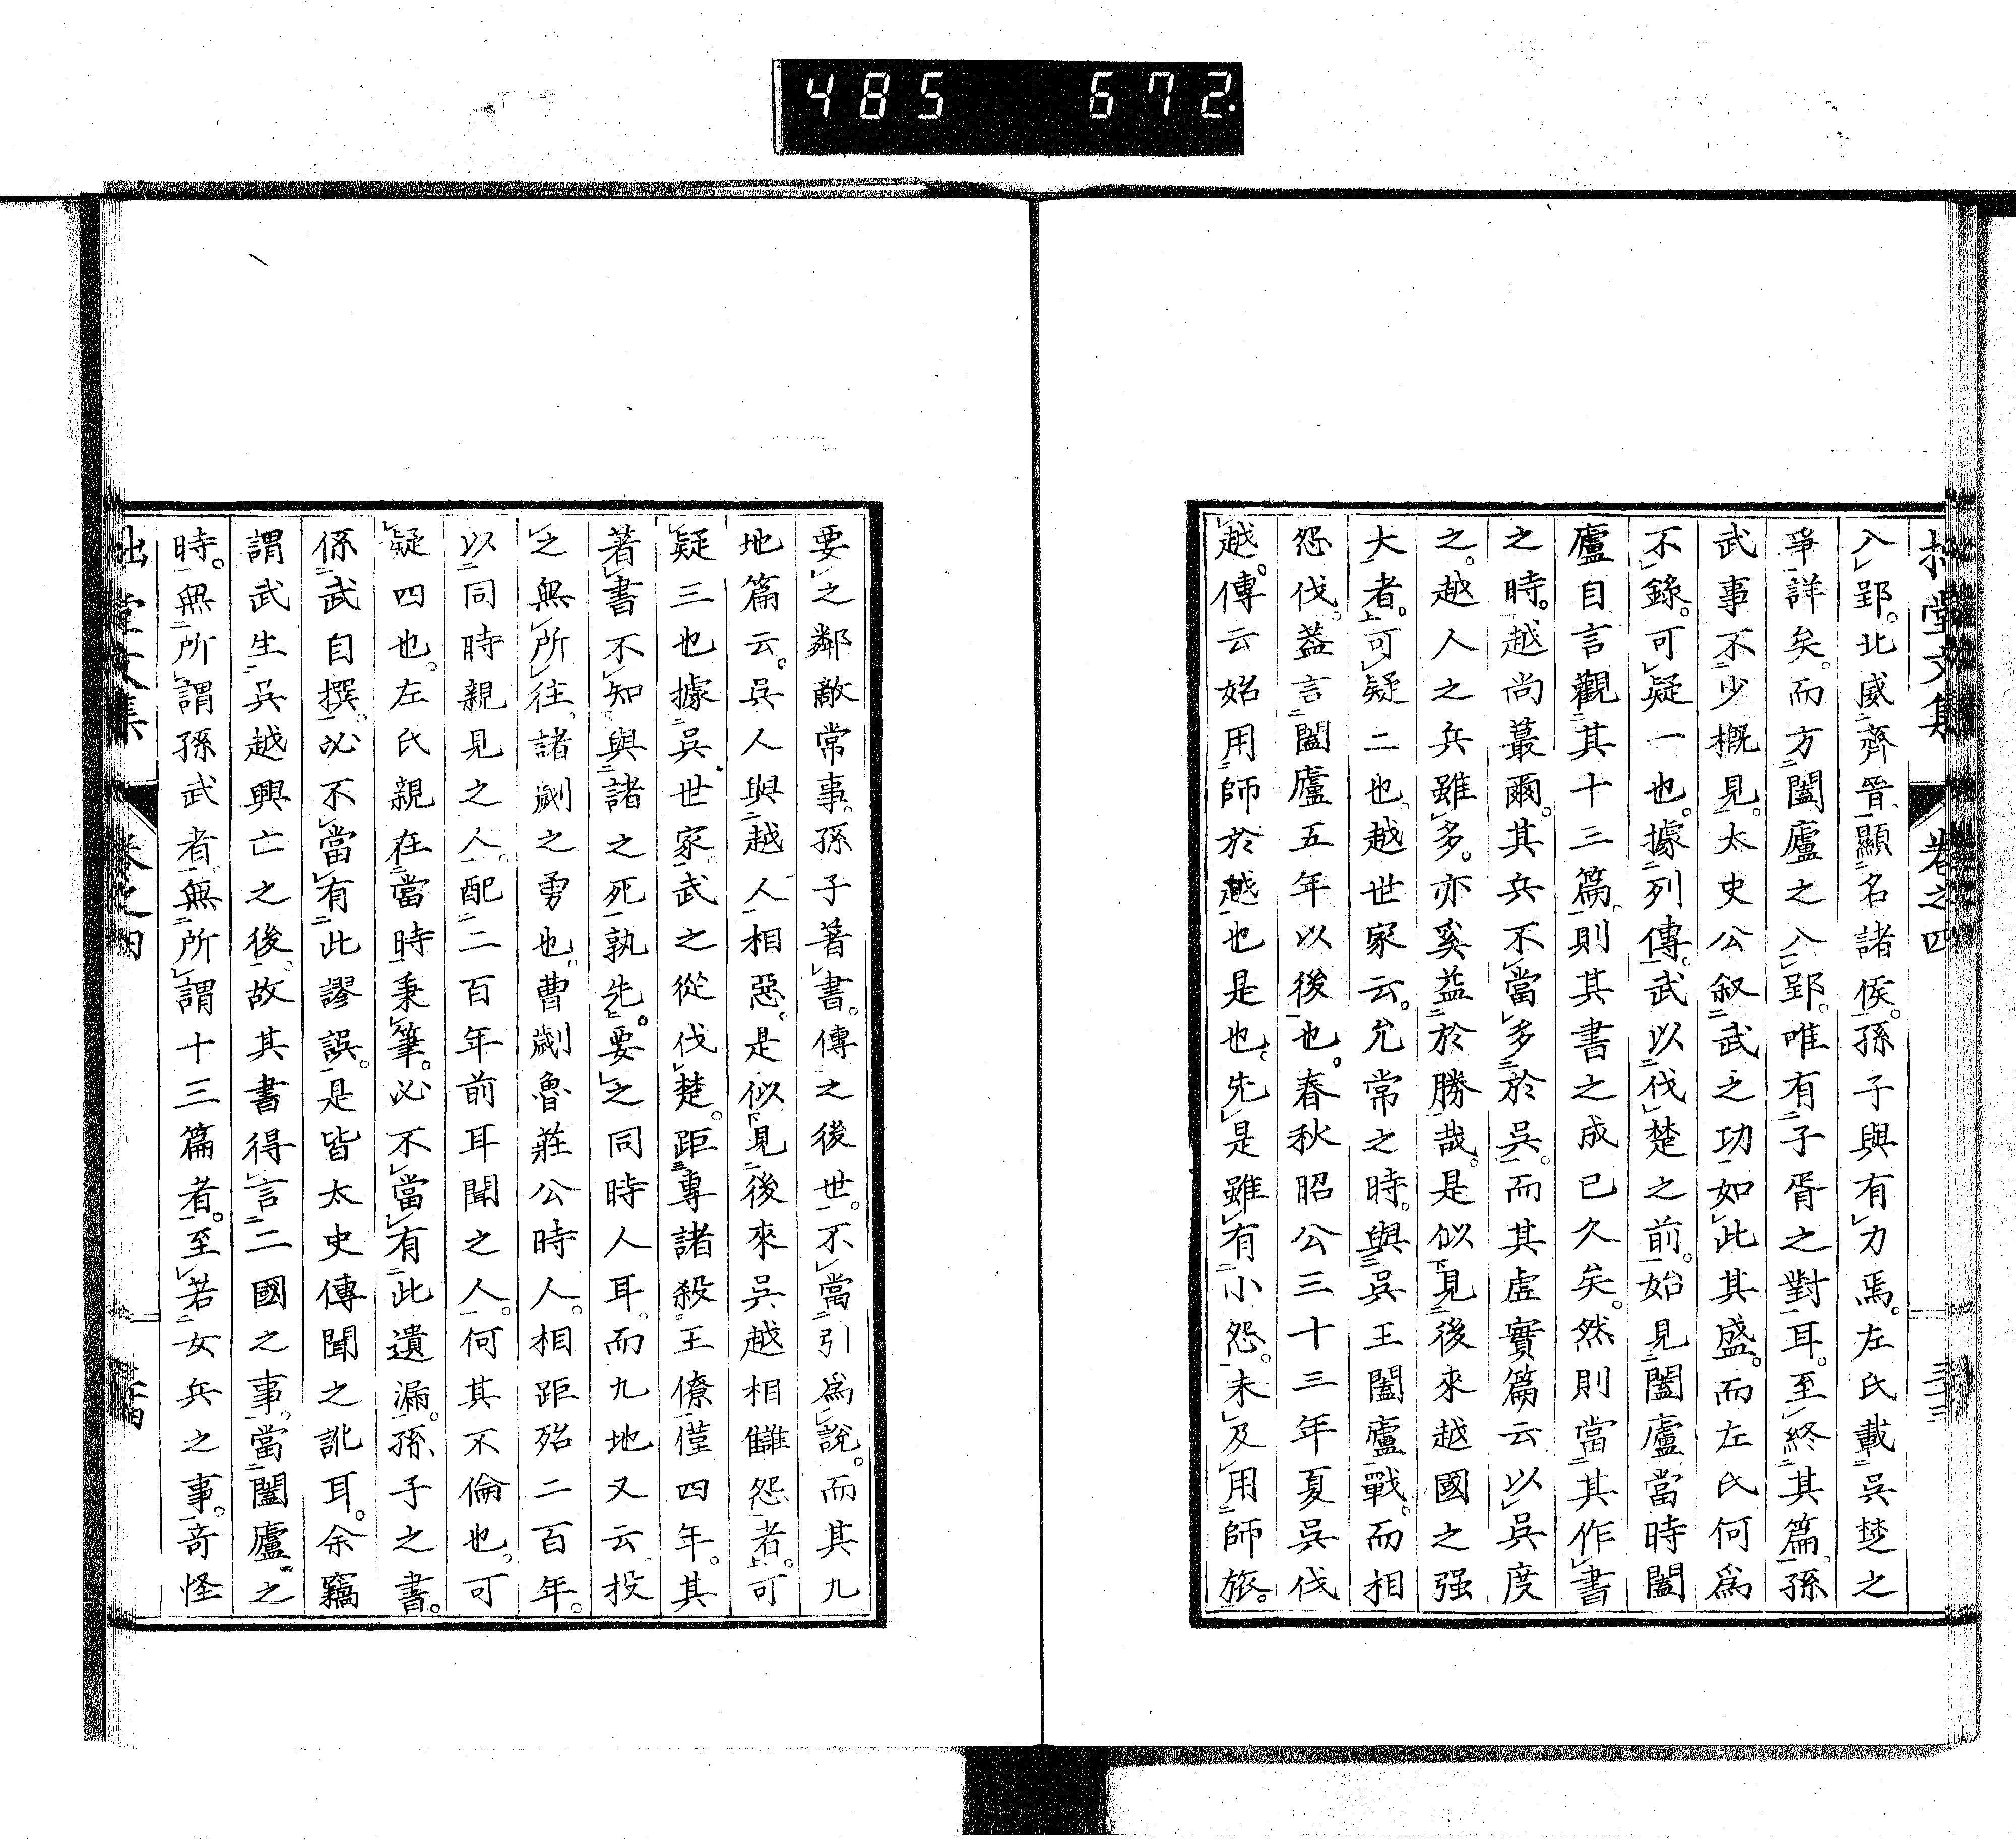 485 672
堂文集 卷之四 三十三
入郢。北威齊晉顯名諸侯。孫子與有力焉。左氏載吳楚之
爭詳矣。而方闔廬之入郢。唯有子胥之對耳。至終其篇孫
武事不少概見。太史公叙武之功如此其盛。而左氏何爲
不錄。可疑一也。據列傳。武以伐楚之前。始見闔廬當時闔
廬自言觀其十三篇。則其書之成已久矣。然則當其作書
之時。越尚蕞爾。其兵不當多於吳。而其虛實篇云以吳度
之。越人之兵雖多。亦奚益於勝哉。是似見後來越國之强
大者。可疑二也。越世家云。允常之時。與吳王闔廬戰。而相
怨伐。蓋言闔廬五年以後也。春秋昭公三十三年夏吳伐
越。傳云始用師於越也是也。先是雖有小怨。未及用師旅。
要之鄰敵常事。孫子著書。傳之後世。不當引爲說。而其九
地篇云。吳人與越人相惡。是似見後來吳越相讎怨者。可
疑三也據吳世家。武之從伐楚。距專諸殺王僚僅四年。其
著書不知與諸之死孰先。要之同時人耳。而九地又云投
之無所往。諸劌之勇也。曹劌魯莊公時人。相距殆二百年。
以同時親見之人。配二百年前耳聞之人。何其不倫也。可
疑四也。左氏親在當時秉筆。必不當有此遺漏。孫子之書。
係武自撰。必不當有此謬誤。是皆太史傳聞之訛耳。余竊
謂武生吳越興亡之後。故其書得言二國之事。當闔廬之
時。無所謂孫武者。無所謂十三篇者。至若女兵之事。奇怪
堂文集 卷之四